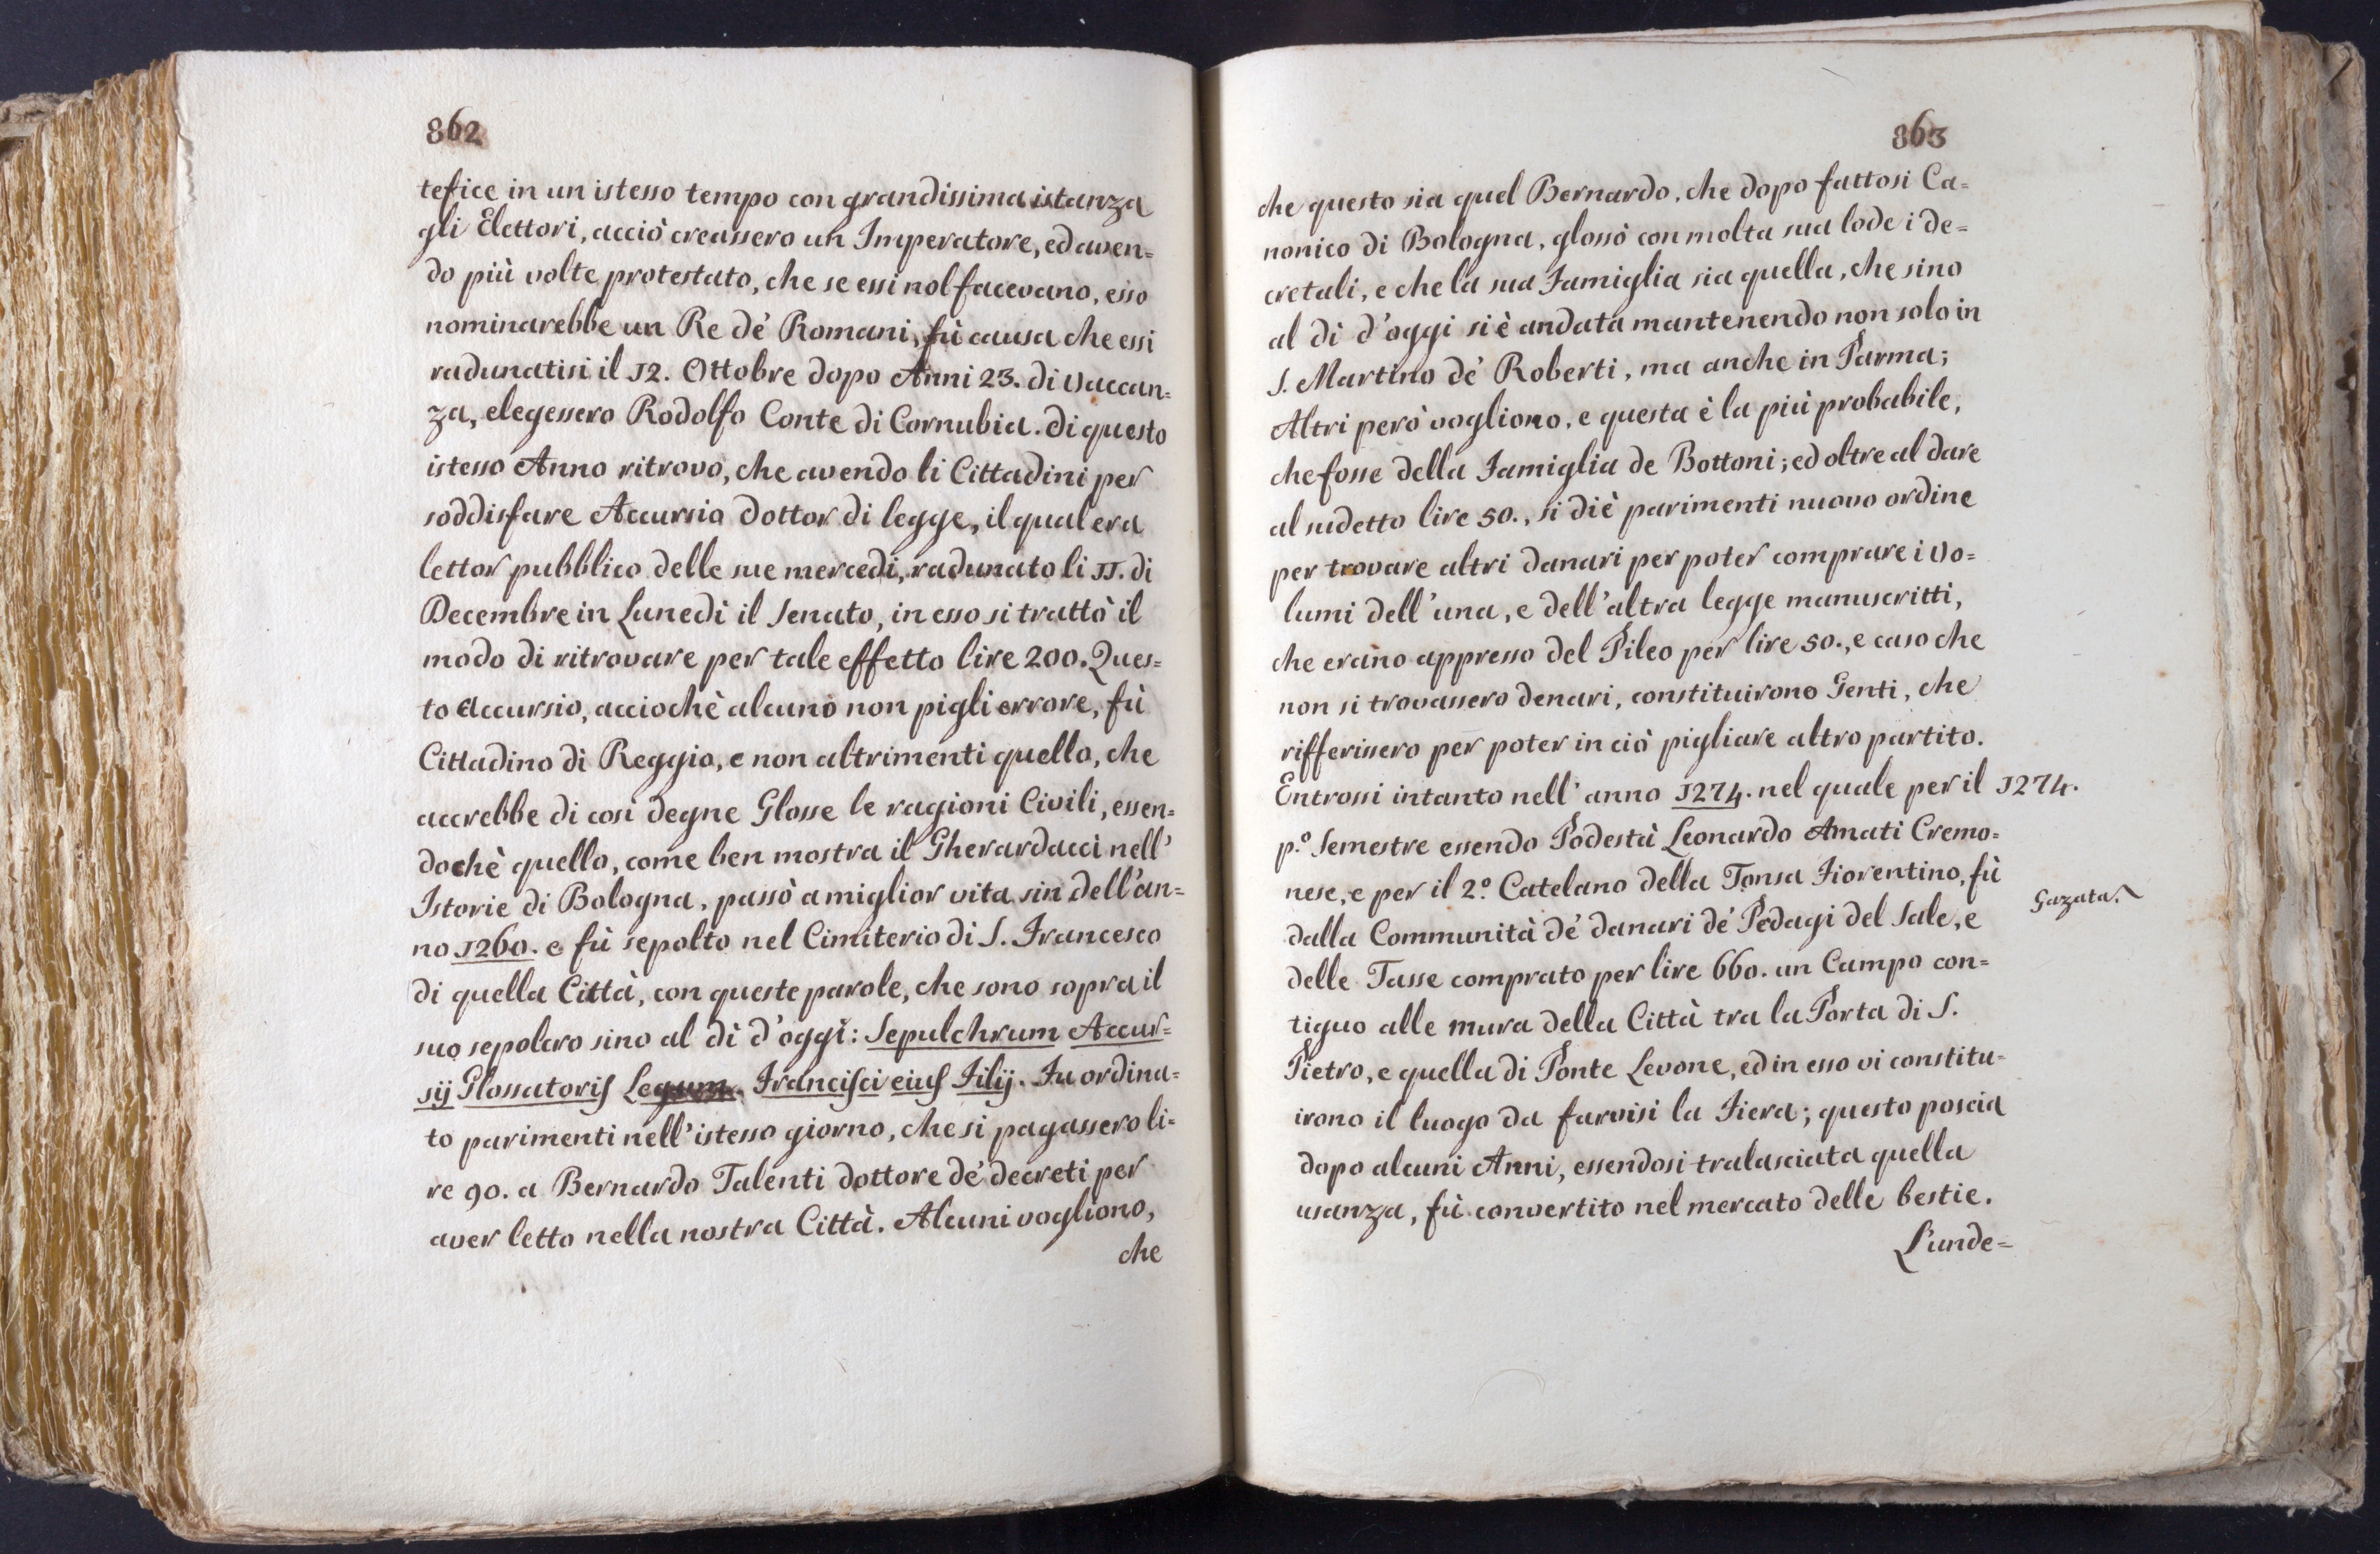 862
tefice in un istesso tempo con grandissima istanza
gli Elettori, acciò creassero un Imperatore, ed aven=
do più volte protestato, che se essi nol facevano, esso
nominarebbe un Re de' Romani, fù causa che essi
radunatisi il 12. Ottobre dopo Anni 23. di Vaccan=
za, elegessero Rodolfo Conte di Cornubia. Di questo
istesso Anno ritrovo, che avendo li Cittadini per
soddisfare Accursio Dottor di legge, il qual era
lettor pubblico delle sue mercedi, radunato li 11. di
Decembre in Lunedì il Senato, in esso si trattò il
modo di ritrovare per tale effetto lire 200. Ques=
to Accursio, acciochè alcuno non pigli errore, fù
Cittadino di Reggio, e non altrimenti quello, che
accrebbe di così degne Glosse le ragioni Civili, essen=
dochè quello, come ben mostra il Gherardacci nell'
Istorie di Bologna, passò a miglior vita sin dell'an=
no 1260. e fù sepolto nel Cimiterio di S. Francesco
di quella Città, con queste parole, che sono sopra il
suo sepolcro sino al dì d'oggi: Sepulchrum Accur=
sij Glossatoris Legum. Francisci eius Filij. Fu ordina=
to parimenti nell'istesso giorno, che si pagassero li=
re 90. a Bernardo Talenti dottore de' decreti per
aver letto nella nostra Città. Alcuni vogliono,
che
863
che questo sia quel Bernardo, che dopo fattosi Ca=
nonico di Bologna, glossò con molta sua lode i de=
cretali, e che la sua Famiglia sia quella, che sino
al dì d'oggi si è andata mantenendo non solo in
S. Martino de' Roberti, ma anche in Parma;
Altri però vogliono, e questa è la più probabile,
che fosse della Famiglia de Bottoni; ed oltre al dare
al sudetto lire 50., si diè parimenti nuovo ordine
per trovare altri danari per poter comprare i Vo=
lumi dell'una, e dell'altra legge manuscritti,
che erano appresso del Pileo per lire 50., e caso che
non si trovassero denari, constituirono Genti, che
rifferissero per poter in ciò pigliare altro partito.
Entrossi intanto nell' anno 1274. nel quale per il 1274.
p.º Semestre essendo Podestà Leonardo Amati Cremo=
nese, e per il 2.º Catelano della Tonsa Fiorentino, fù
Gazata.
dalla Communità de' danari de' Pedagi del Sale, e
delle Tasse comprato per lire 660. un Campo con=
tiguo alle mura della Città tra la Porta di S.
Pietro, e quella di Ponte Levone, ed in esso vi constitu=
irono il luogo da farvisi la Fiera; questo poscia
dopo alcuni Anni, essendosi tralasciata quella
usanza, fù convertito nel mercato delle bestie.
L'unde=